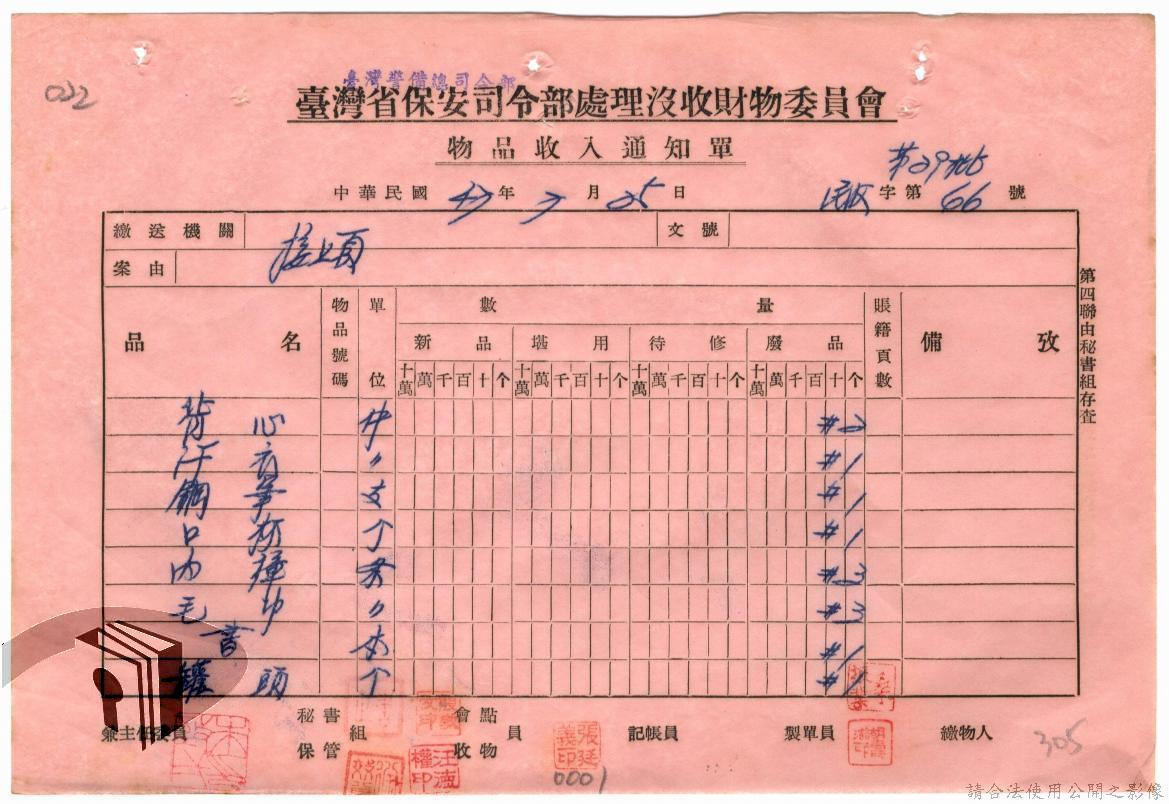 022
臺灣警備總司令部
臺灣省保安司令部處理沒收財物委員會
物品收入通知單
第29批
中華民國 47年 7月 25日 字第 66 號
繳送機關 文號
接上頁
案由
第四聯由秘書組存查
品名 物品號碼 單位 數量 賬籍頁數 備攷
新品 堪用 待修 廢品
十萬 萬 千 百 十 个 十萬 萬 千 百 十 个 十萬 萬 千 百 十 个 十萬 萬 千 百 十 个
背心 件 #2
汗衣 〃 #1
鋼筆 支 #1
口 个 #1
內褲 #3
毛巾 〃 #3
書 本 #1
罐頭 个 #1
兼主任委員 秘書保管組 會點收物員 記帳員 製單員 繳物人
張廷義印
汪 權印
0001
305
請合法使用公開之影像